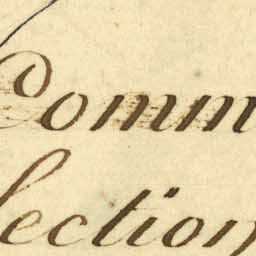 Comm
lection